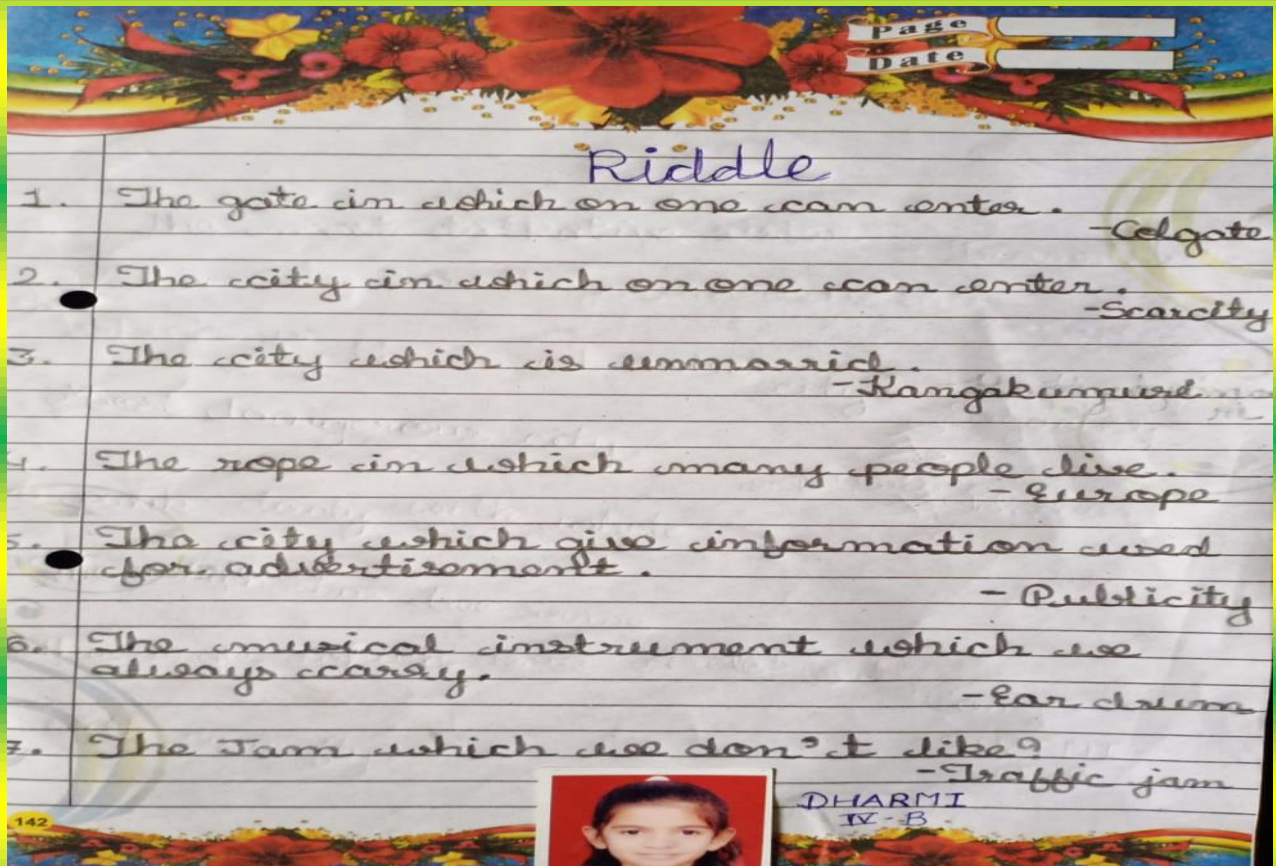 Page
Date
Riddle
1. The gate in which on one can enter.
-Colgate
2. The city in which on one can enter.
-Scarcity
3. The city which is unmarrid.
4. The rope in which many people live.
- Europe
5. The city which give information used
for advertisement.
- Publicity
6. The musical instrument which we
always carry.
-Ear drum
7. The Jam which we don't like?
-Traffic jam
DHARMI
IV-B
142